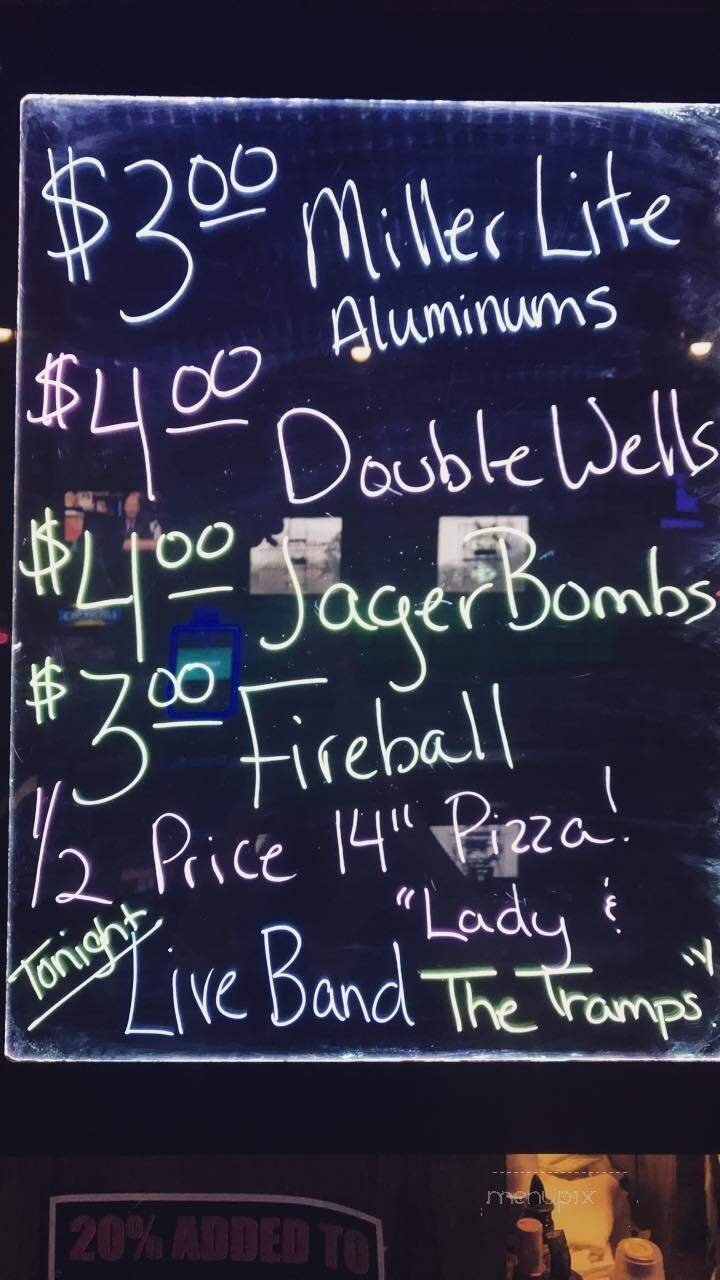 $3.00 Miller Lite
Aluminums
$4.00 Double Wells
$4.00 Jager Bombs
$3.00 Fireball
1/2 Price 14" Pizza!
Tonight Live Band "Lady &
The Tramps"
menupix
20% ADDED TO